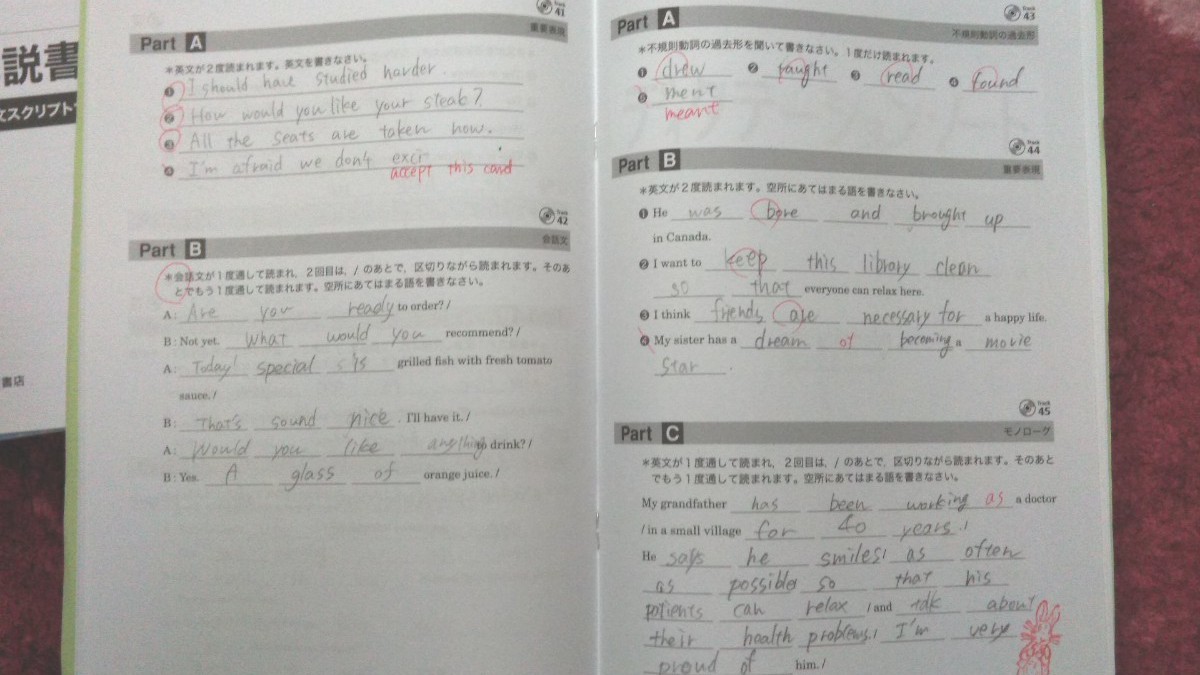 説書
文スクリプト
書店
Track 41
Part A
重要表現
＊英文が2度読まれます。英文を書きなさい。
❶ I should have studied harder.
❷ How would you like your steak?
❸ All the seats are taken now.
❹ I'm afraid we don't exci
accept this card
Track 42
Part B
会話文
＊会話文が1度通して読まれ，2回目は，/ のあとで，区切りながら読まれます。そのあ
とでもう1度通して読まれます。空所にあてはまる語を書きなさい。
A : Are you ready to order? /
B : Not yet. What would you recommend? /
A : Today' special s is grilled fish with fresh tomato
sauce. /
B : That's sound nice . I'll have it. /
A : Would you like anything to drink? /
B : Yes. A glass of orange juice. /
Track 43
Part A
不規則動詞の過去形
＊不規則動詞の過去形を聞いて書きなさい。1度だけ読まれます。
❶ drew ❷ taught ❸ read ❹ found
❺ ment
meant
Track 44
Part B
重要表現
＊英文が2度読まれます。空所にあてはまる語を書きなさい。
❶ He was bore and brought up
in Canada.
❷ I want to keep this library clean
so that everyone can relax here.
❸ I think friends are necessary for a happy life.
❹ My sister has a dream of becoming a movie
star .
Track 45
Part C
モノローグ
＊英文が1度通して読まれ，2回目は，/ のあとで，区切りながら読まれます。そのあと
でもう1度通して読まれます。空所にあてはまる語を書きなさい。
My grandfather has been working as a doctor
/ in a small village for 40 years. /
He says he smiles / as often
as possible so that his
patients can relax / and talk about
their health problems. / I'm very
proud of him. /